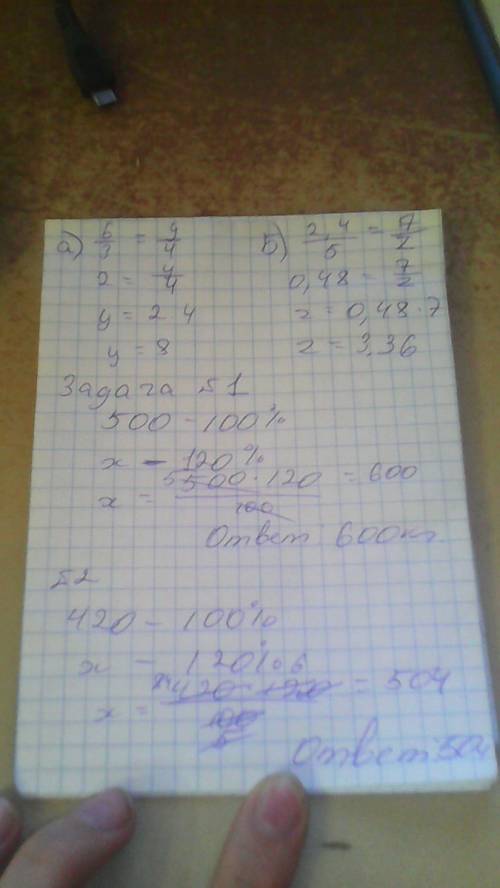 а) 6/3 = y/4
2 = y/4
y = 2 · 4
y = 8
б) 2,4/5 = 7/z
0,48 = 7/z
z = 0,48 · 7
z = 3,36
Задача №1
500 - 100%
x - 120%
x = 500 · 120 / 100 = 600
Ответ 600 кг
№2
420 - 100%
x - 120%
x = 420 · 120 / 100 = 504
Ответ 504